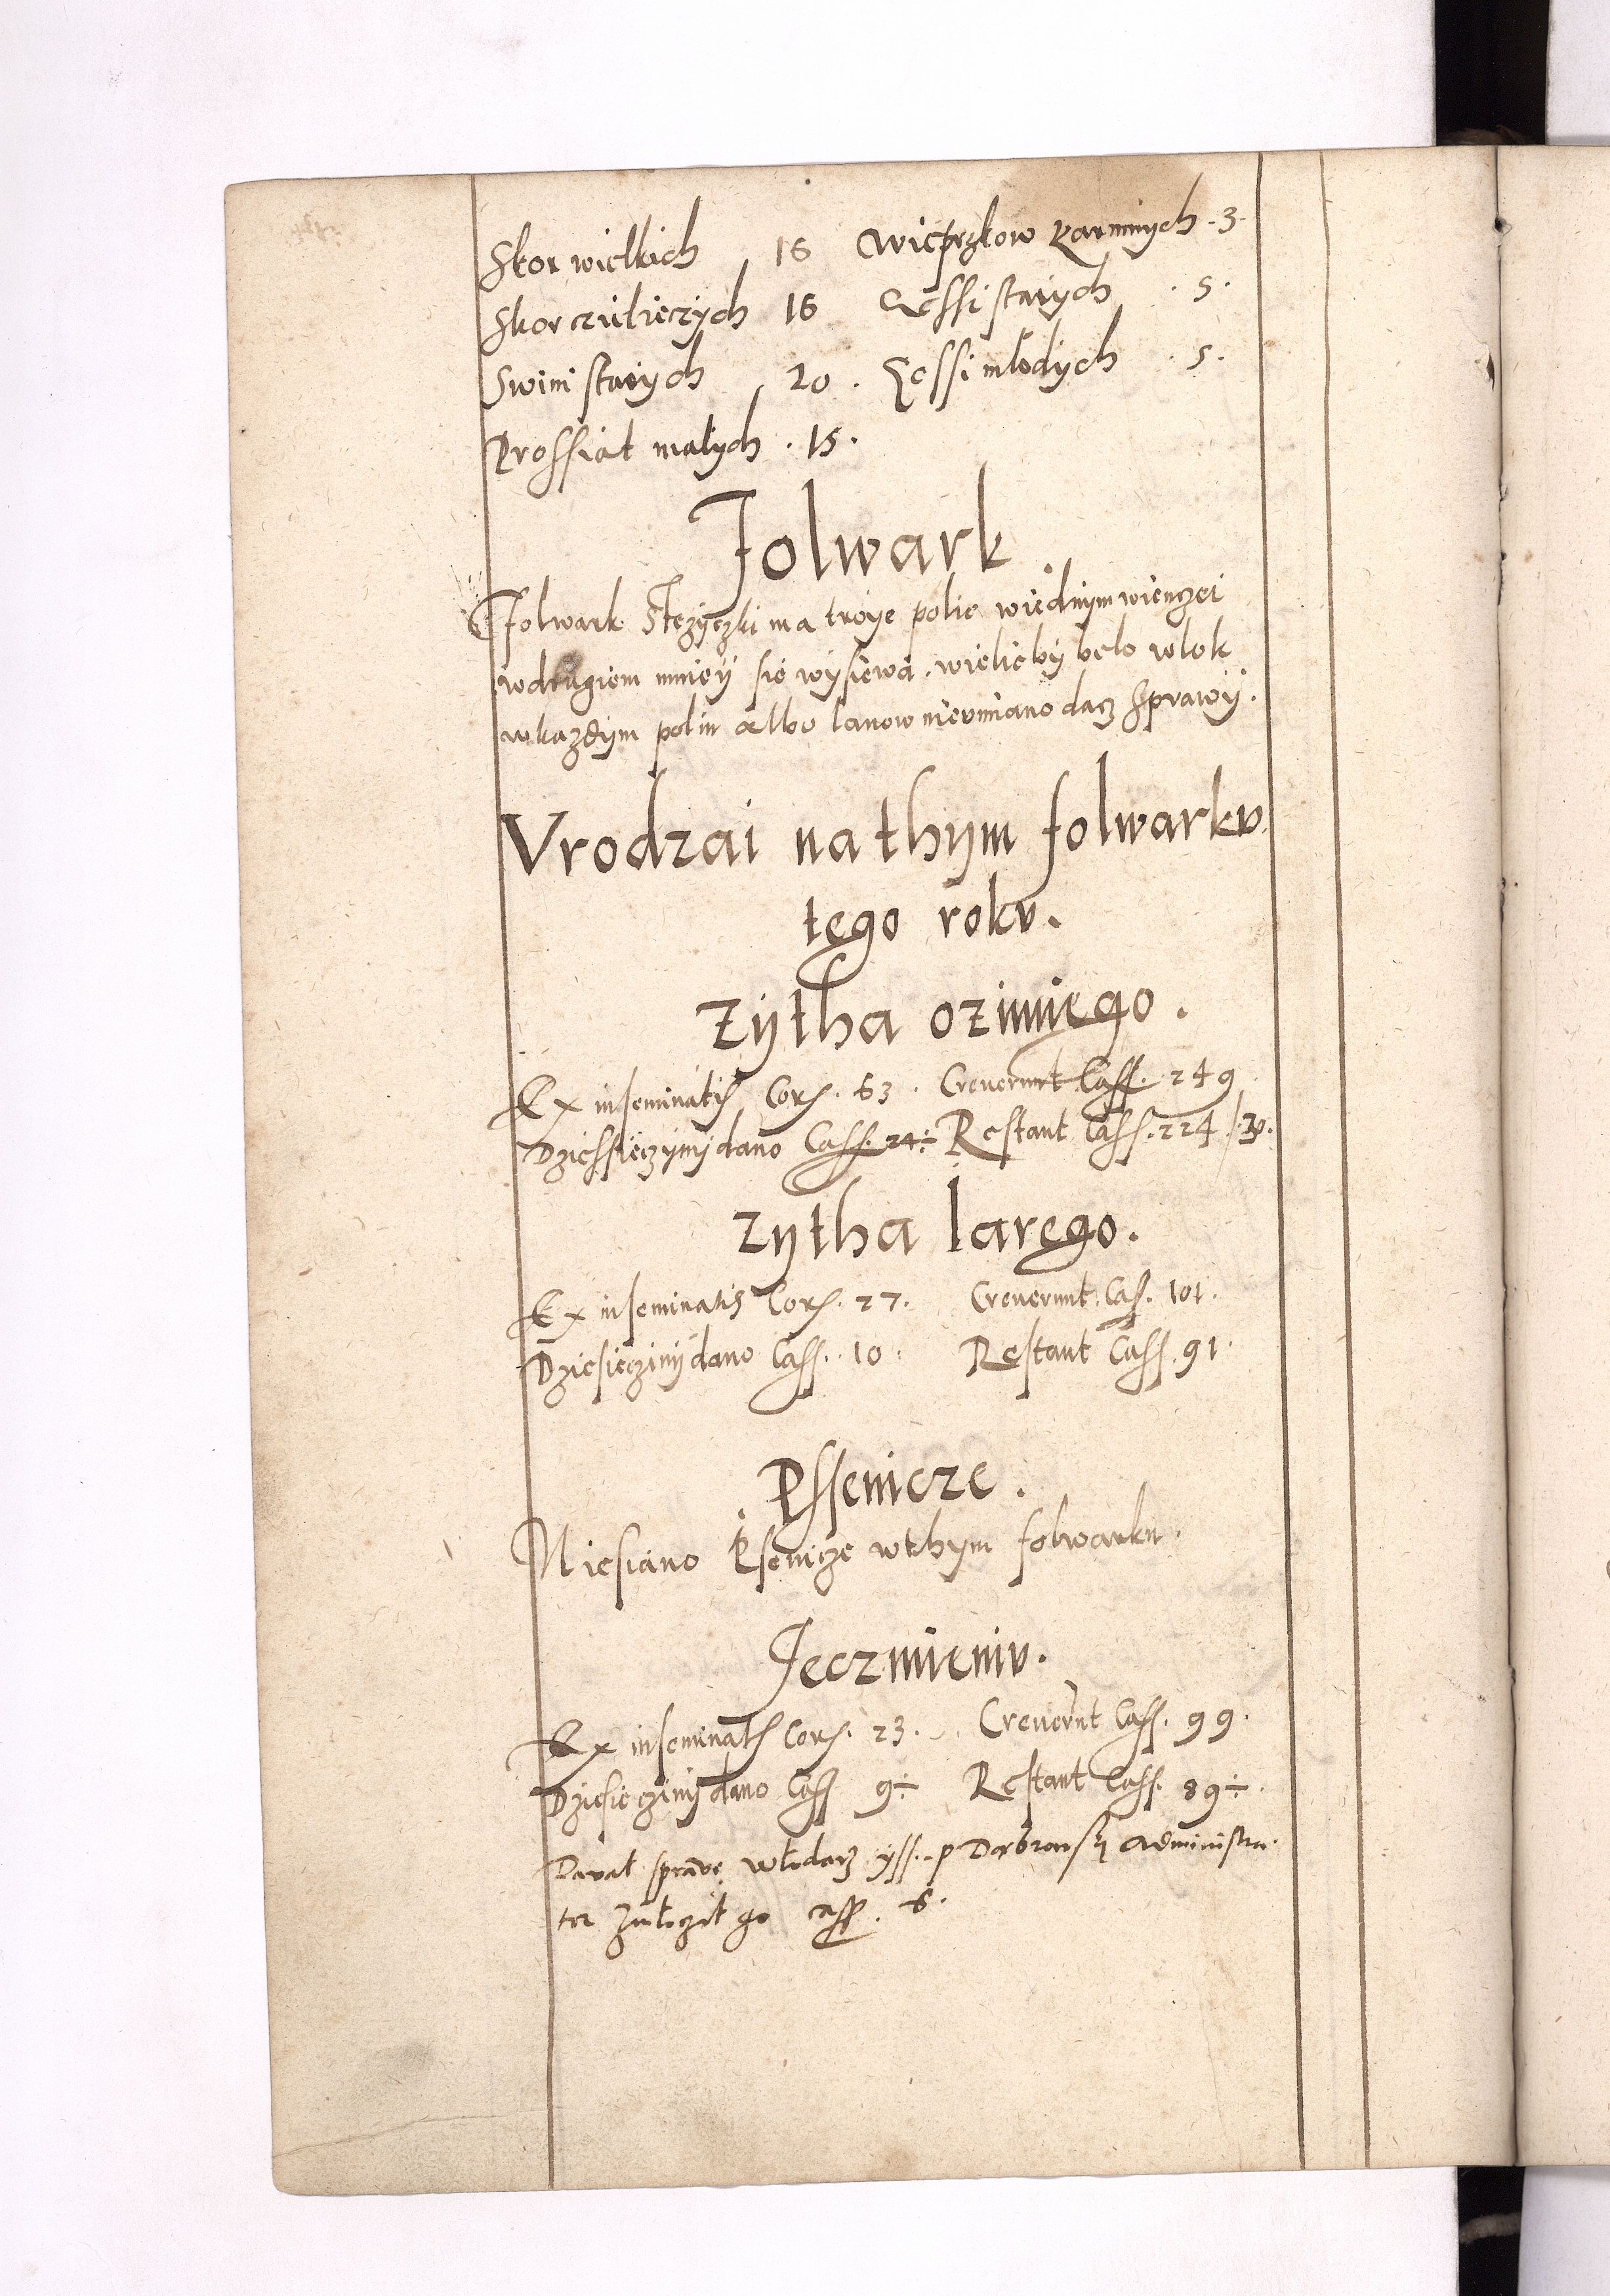 Skor wielkich 16 Wieprzkow karmnych .3.
Skor czielieczych 16 Gessi starych . 5.
Swini starych 20 . Gessi mlodych . 5.
Prossiat malych . 15.
Folwark
Folwark Stezyczki ma troye polie wiednym wienczei
wdrugiem mniey sie wysiewa. wielieby belo wlok
wkazdym poliu albo lanow nievmiano dacz sprawy.
Vrodzai na thym folwarkv
tego rokv.
Zytha ozimiego .
Ex inseminatis Cor. 63 . Creuerunt Cass. 249
Dziessieczyny dano Cass. 24÷ Restant Cass. 224 /.30.
Zytha Iarego.
Ex inseminatis Cor. 27. Creuerunt Cas. 101.
Dziesiecziny dano Cass. 10. Restant Cass. 91.
Pssenicze .
Niesiano Psenicze wthym folwarku.
Jeczmieniv.
Ex inseminatis Cor. 23. Creuerunt Cass. 99.
Dziesiecziny dano Cass 9÷ Restant Cass. 89÷.
Davał sprave włodarz yss. p administra
tor go cass. 6.